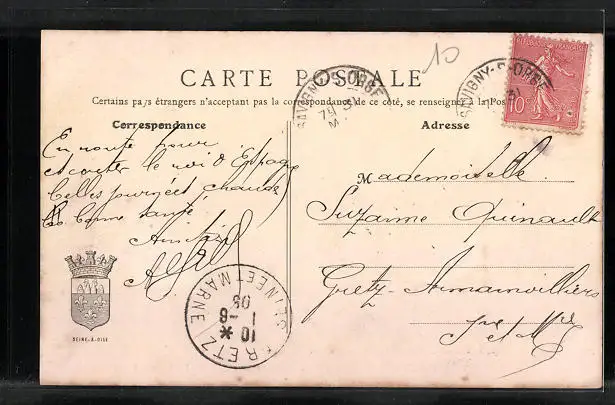 10
CARTE POSTALE
Certains pays étrangers n'acceptant pas la correspondance de ce côté, se renseigner à la Pos
Correspondance
Adresse
En route pour
escorter le roi d'Espagne
belles journées chaudes
bonne santé
Amitiés
Mademoiselle
Suzanne Quinault
Gretz-Armainvilliers
Set Mne
SEINE-&-OISE
SAVIGNY-S-ORGE
SAVIGNY-S-ORGE
REPUBLIQUE FRANÇAISE
10
GRETZ
SEINE ET MARNE
10 *
1 -6
05